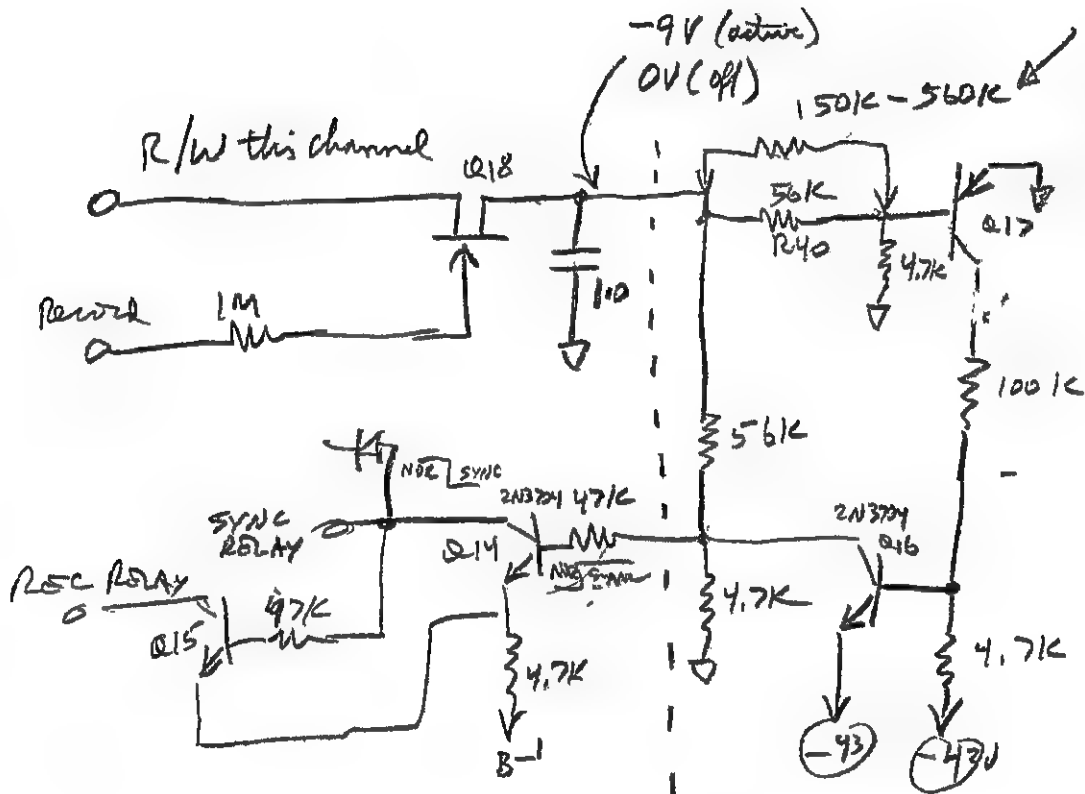 -9V (active)
0V (off)
150K - 560K
R/W this channel
Q18
56K
R40
Q17
4.7K
1.0
Record
1M
100K
56K
NOR SYNC
SYNC
RELAY
2N3704
47K
Q14
2N3704
Q16
REC RELAY
Q15
47K
4.7K
4.7K
4.7K
B-1
-43
-43V